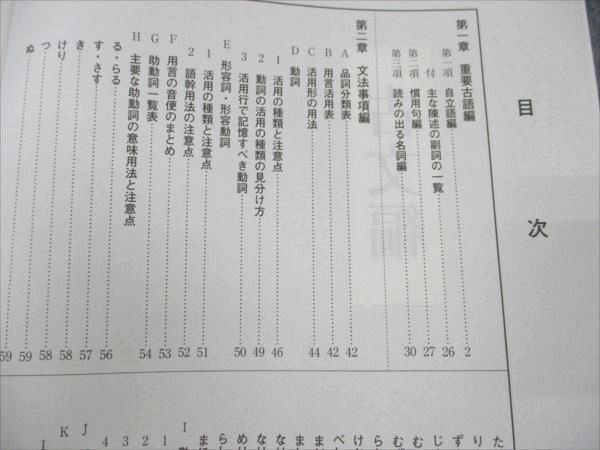 目次
第一章 重要古語編
第一項 自立語編 2
付 主な陳述の副詞の一覧 26
第二項 慣用句編 27
第三項 読みの出る名詞編 30
第二章 文法事項編
A 品詞分類表 42
B 用言活用表 42
C 活用形の用法 44
D 動詞
1 活用の種類と注意点 46
2 動詞の活用の種類の見分け方 49
3 活用行で記憶すべき動詞 50
E 形容詞・形容動詞
1 活用の種類と注意点 51
2 語幹用法の注意点 52
F 用言の音便のまとめ 53
G 助動詞一覧表 54
H 主要な助動詞の意味用法と注意点
る・らる 56
す・さす 57
き 58
けり 58
つ 59
ぬ 59
た
り
ず
じ
む
I
1
2
3
4
J
K